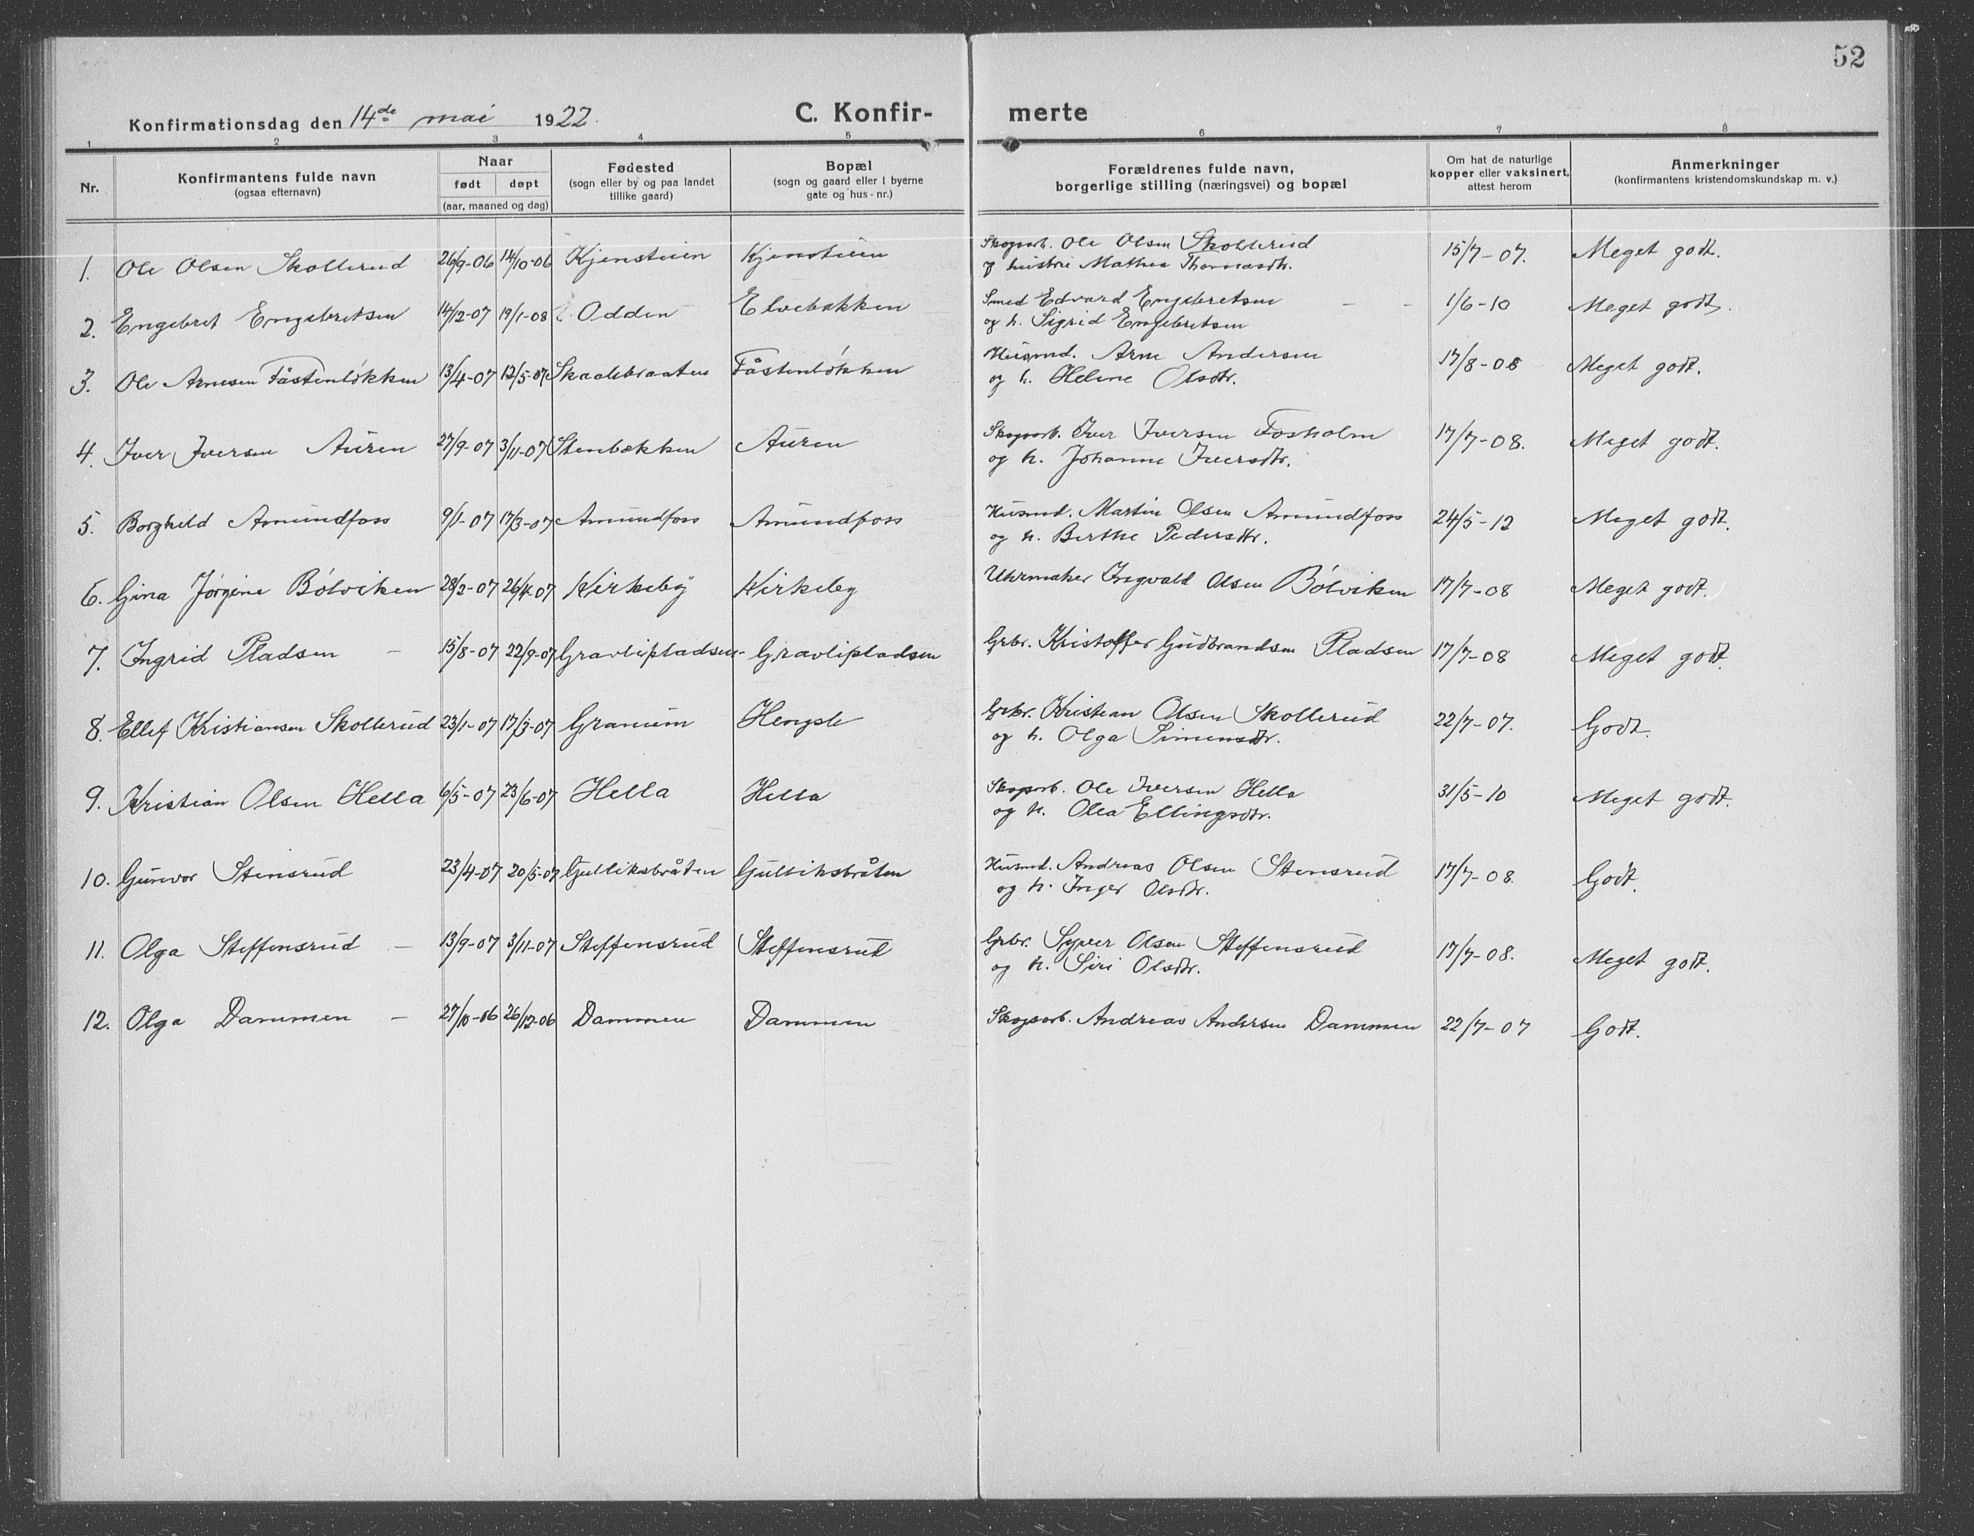 52
Konfirmationsdag den 14de mai 1922.
C. Konfir-
merte
1 2 3 4 5 6 7 8
Nr.
Konfirmantens fulde navn
(ogsaa efternavn)
Naar
født døpt
(aar, maaned og dag)
Fødested
(sogn eller by og paa landet
tillike gaard)
Bopæl
(sogn og gaard eller i byerne
gate og hus-nr.)
Forældrenes fulde navn,
borgerlige stilling (næringsvei) og bopæl
Om hat de naturlige
kopper eller vaksinert,
attest herom
Anmerkninger
(konfirmantens kristendomskundskap m. v.)
1. Ole Olsen Skollerud 26/9-06 14/10-06 Kjensteien Kjensteien Skogarb. Ole Olsen Skollerud 15/7-07. Meget godt.
og hustru Mathea Thomasdtr.
2. Engebret Engebretsen 14/12-07 19/1-08 Odden Elvebakken Smed Edvard Engebretsen - - 1/6-10 Meget godt.
og h. Sigrid Engebretsen
3. Ole Arnesen Fåstenløkken 13/4-07 12/5-07 Skaalebraaten Fåstenløkken Husmd. Arne Andersen 17/8-08 Meget godt.
og h. Helene Olsdtr.
4. Iver Iversen Auren 27/9-07 3/11-07 Stenbækken Auren Skogarb. Iver Iversen Fosholm 17/7-08. Meget godt.
og h. Johanne Iversdtr.
5. Borghild Amundfoss 9/1-07 17/3-07 Amundfoss Amundfoss Husmd. Martin Olsen Amundfoss 24/5-12 Meget godt.
og h. Berthe Pedersdtr.
6. Gina Jørgine Bølviken 28/2-07 26/4-07 Kirkeby Kirkeby Uhrmaker Ingvald Olsen Bølviken 17/7-08 Meget godt.
7. Ingrid Pladsen - 15/8-07 22/9-07 Gravlipladsen- Gravlipladsen Grbr. Kristoffer Gudbrandsen Pladsen 17/7-08 Meget godt.
8. Ellef Kristiansen Skollerud 23/1-07 17/3-07 Granum Hengsle Grbr. Kristian Olsen Skollerud 22/7-07. Godt.
og h. Olga Simensdtr.
9. Kristian Olsen Hella 6/5-07 23/6-07 Hella Hella Skogarb. Ole Iversen Hella 31/5-10 Meget godt.
og h. Olea Ellingsdtr.
10. Gunvor Stensrud 23/4-07 20/5-07 Gulliksbråten Gulliksbråten Husmd. Andreas Olsen Stensrud 17/7-08. Godt.
og h. Inger Olsdtr.
11. Olga Steffensrud - 13/9-07 3/11-07 Steffensrud Steffensrud Grbr. Syver Olsen Steffensrud 17/7-08. Meget godt.
og h. Siri Olsdtr.
12. Olga Dammen - 27/10-06 26/12-06 Dammen Dammen Skogarb. Andreas Andersen Dammen 22/7-07 Godt.